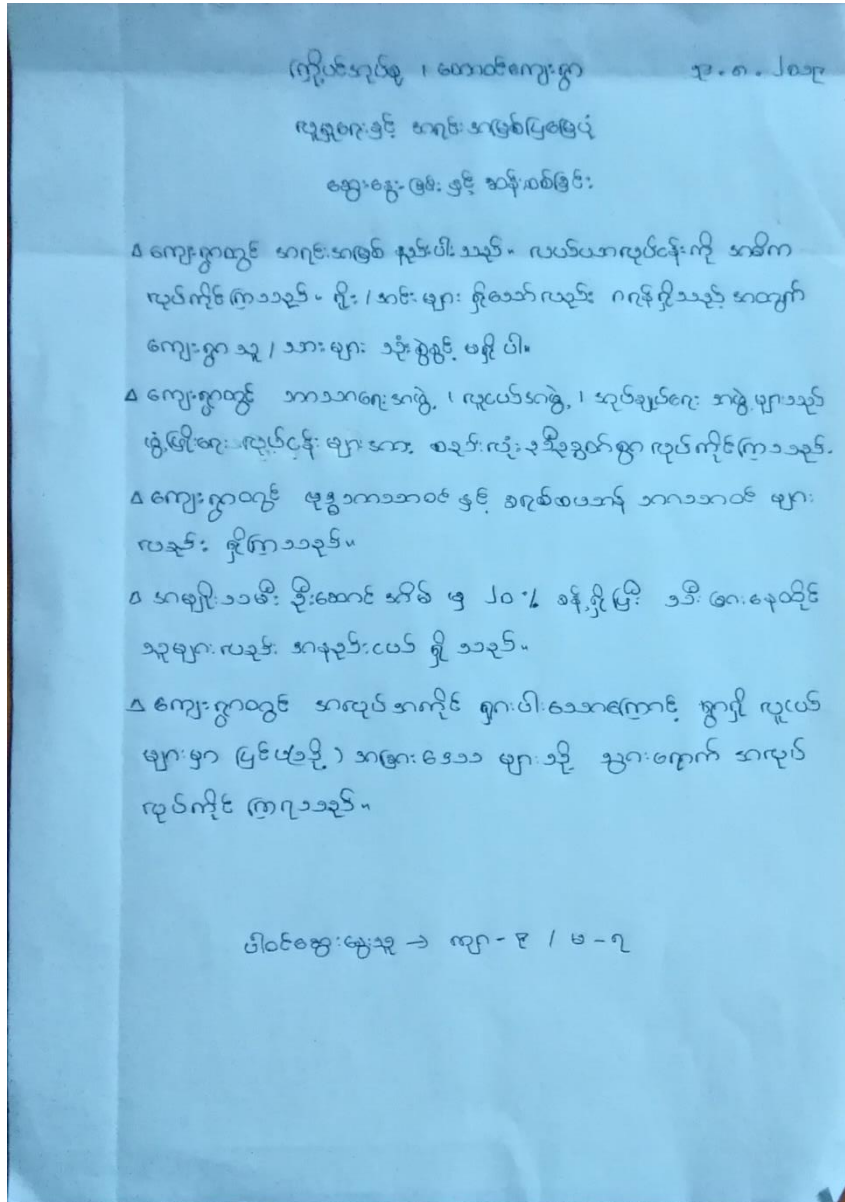 ကြို့ပင်အုပ်စု ၊ တောင်ကျေးရွာ ၃.၈.၂၀၁၃
လူမှုရေးနှင့် အရင်းအမြစ်ပြမြေပုံ
ဆွေးနွေးခြင်း နှင့် ဆန်းစစ်ခြင်း
∆ ကျေးရွာတွင် အရင်းအမြစ် နည်းပါးသည်။ လယ်ယာလုပ်ငန်းကို အဓိက
လုပ်ကိုင်ကြသည်။ ရိုး / အင်း များ ရှိသော်လည်း ဂရန်ရှိသည့် အတွက်
ကျေးရွာ သူ / သား များ သုံးစွဲခွင့် မရှိပါ။
∆ ကျေးရွာတွင် ဘာသာရေးအဖွဲ့ ၊ လူငယ်အဖွဲ့ ၊ အုပ်ချုပ်ရေး အဖွဲ့ များသည်
ဖွံ့ဖြိုးရေး လုပ်ငန်း များအား စည်းလုံးညီညွတ်စွာ လုပ်ကိုင်ကြသည်။
∆ ကျေးရွာတွင် ဗုဒ္ဓဘာသာဝင် နှင့် ခရစ်ယာန် ဘာသာဝင် များ
လည်း ရှိကြသည်။
∆ အမျိုးသမီး ဦးဆောင် အိမ် မှ ၂၀% ခန့်ရှိပြီး သီးခြားနေထိုင်
သူများလည်း အနည်းငယ် ရှိသည်။
∆ ကျေးရွာတွင် အလုပ်အကိုင် ရှားပါးသောကြောင့် ရွာရှိ လူငယ်
များမှာ ပြင်ပ(သို့) အခြားဒေသ များသို့ သွားရောက် အလုပ်
လုပ်ကိုင် ကြရသည်။
ပါဝင်ဆွေးနွေးသူ → ကျာ - ၃ / မ - ၇